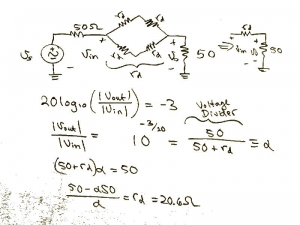 50Ω rd rd
Vs Vin rd rd Vo 50 ⇒ Vin Vo 50
rd
rd
20log10 (|Vout| / |Vin|) = -3
Voltage Divider
|Vout| / |Vin| = 10^(-3/20) = 50 / (50 + rd) ≡ α
(50+rd)α = 50
(50 - α50) / α = rd = 20.6Ω